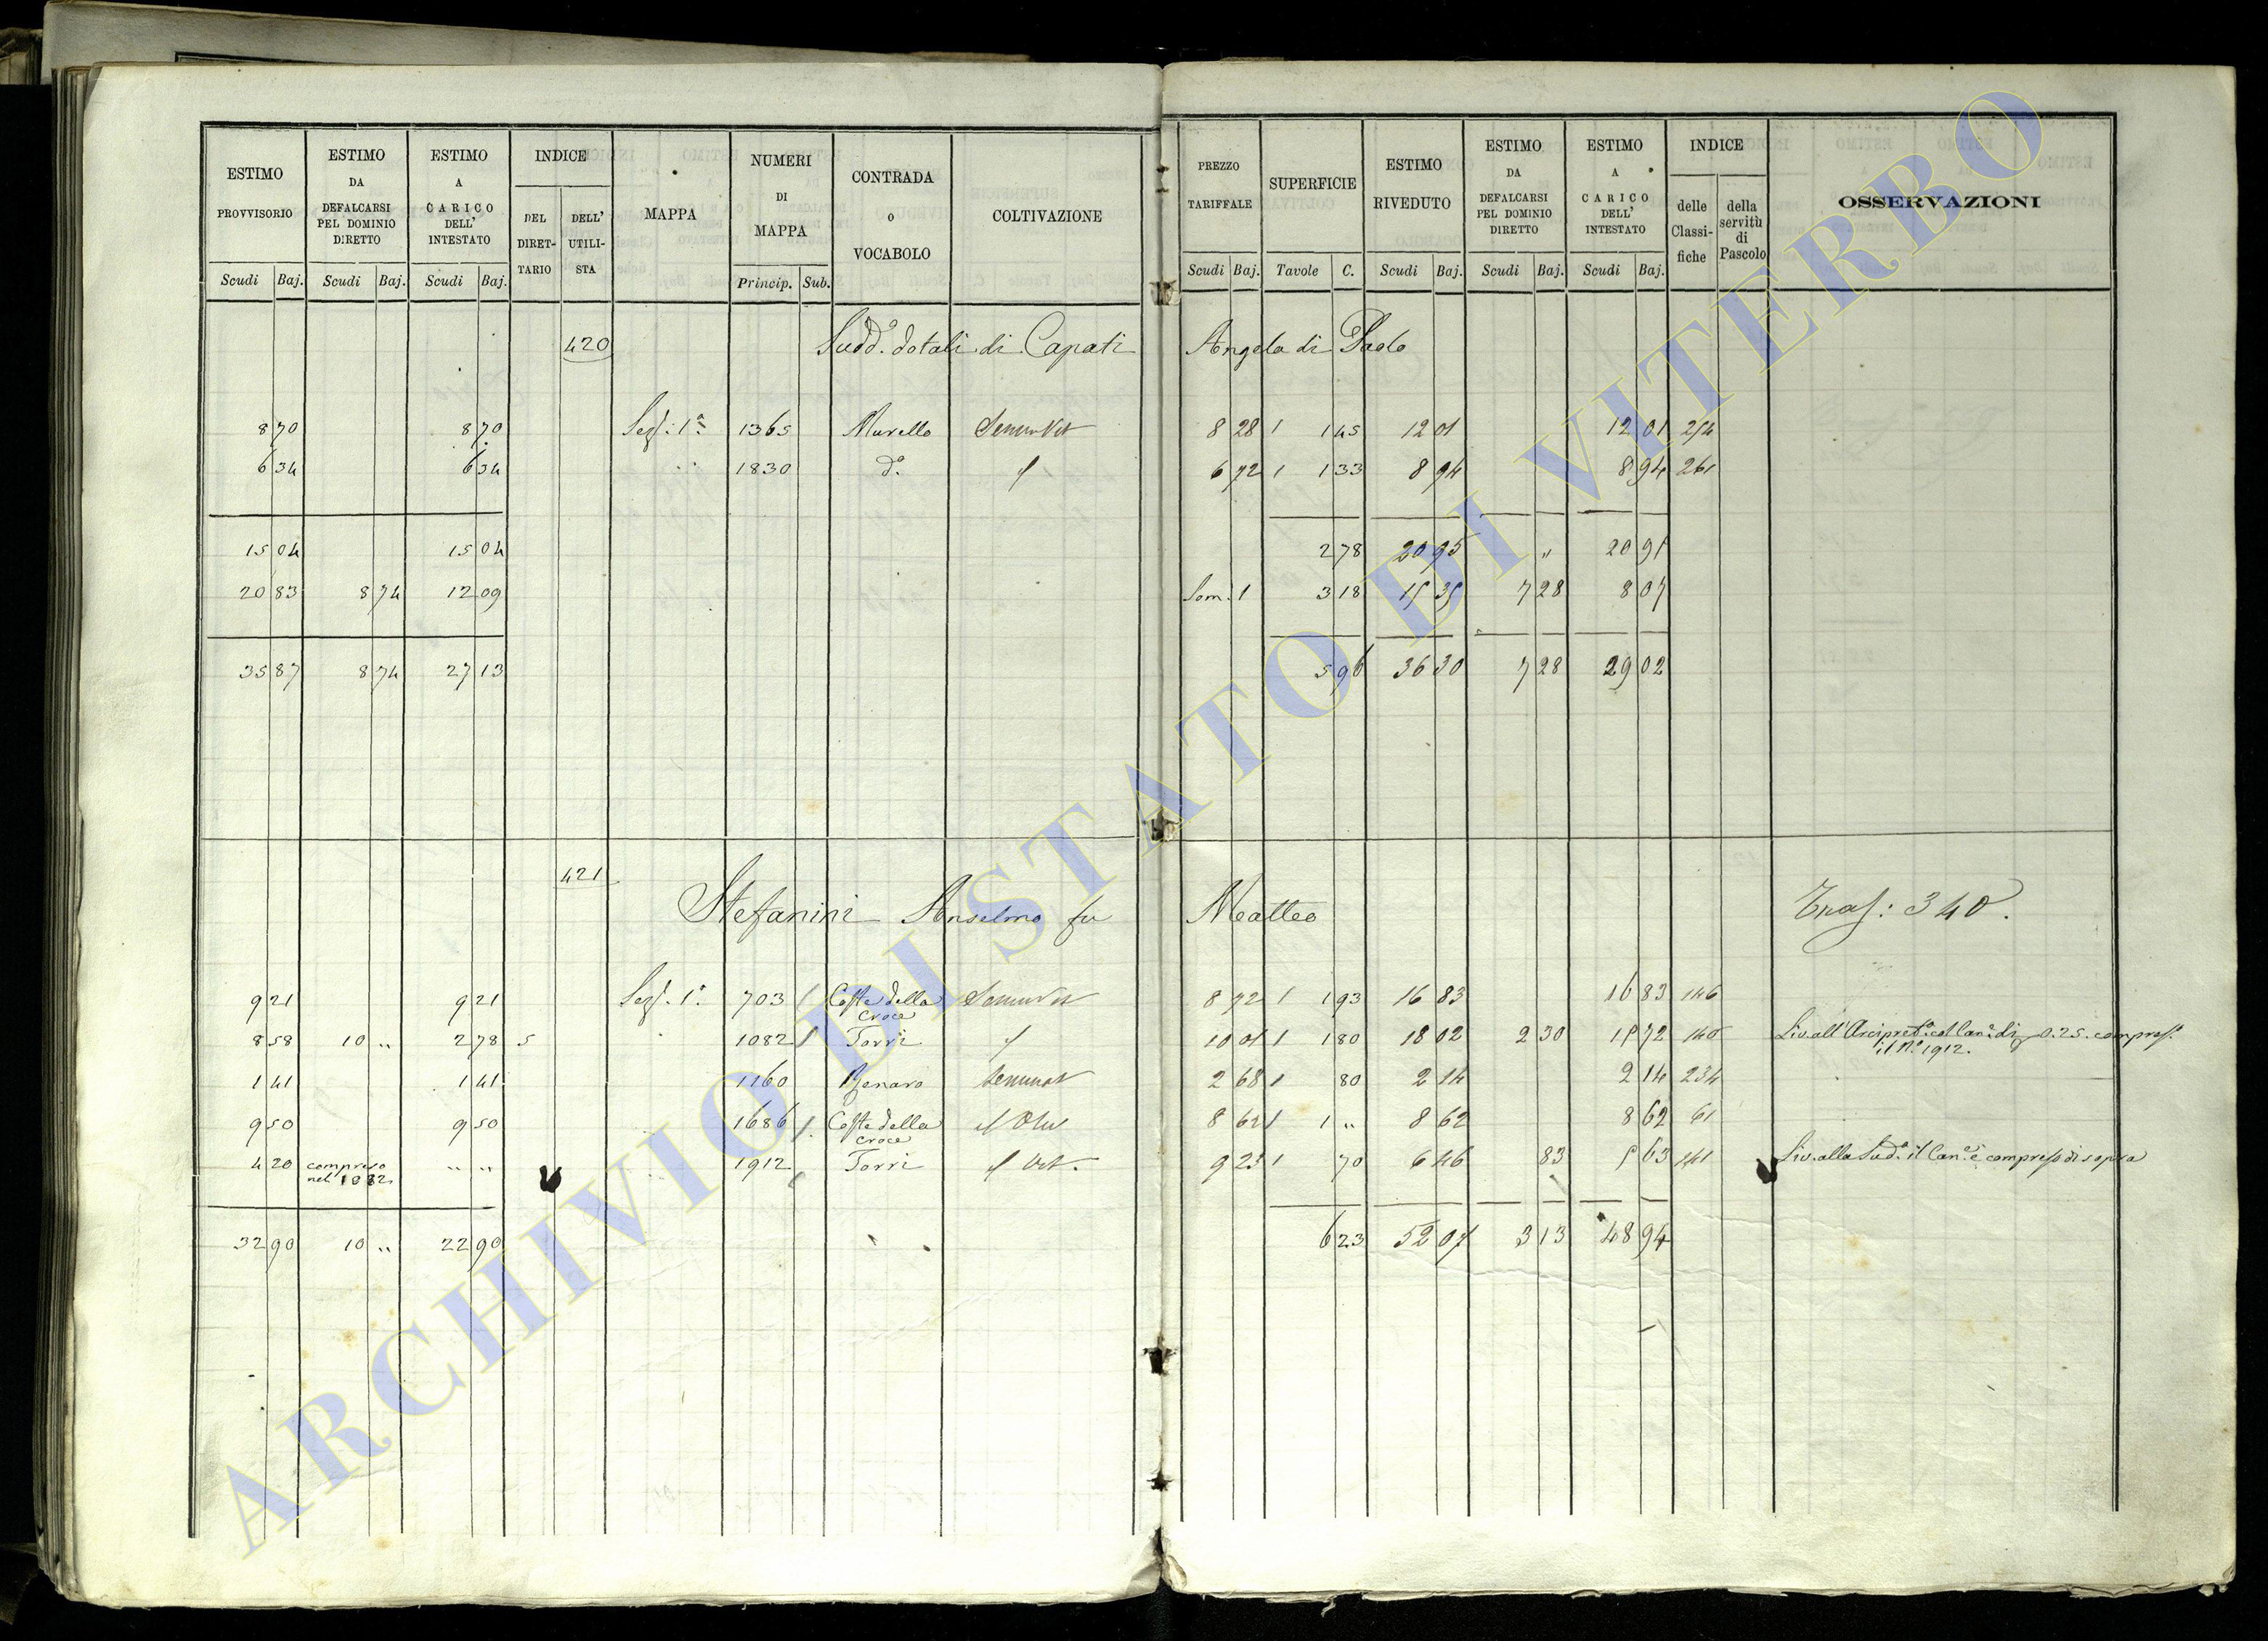 ESTIMO PROVVISORIO Scudi Baj. ESTIMO DA DEFALCARSI PEL DOMINIO DIRETTO Scudi Baj. ESTIMO A CARICO DELL' INTESTATO Scudi Baj. INDICE DEL DIRET-TARIO DELL' UTILI-STA MAPPA NUMERI DI MAPPA Princip. Sub. CONTRADA O VOCABOLO COLTIVAZIONE PREZZO TARIFFALE Scudi Baj. SUPERFICIE Tavole C. ESTIMO RIVEDUTO Scudi Baj. ESTIMO DA DEFALCARSI PEL DOMINIO DIRETTO Scudi Baj. ESTIMO A CARICO DELL' INTESTATO Scudi Baj. INDICE delle Classi-fiche della servitù di Pascolo OSSERVAZIONI
420 Sudd.i dotali di Capati Angela di Paolo
8 70 8 70 Sez: 1a 1365 Murello SeminVit 8 28 1 1 45 12 01 12 01 254
6 34 6 34 " 1830 do 6 72 1 1 33 8 94 8 94 261
15 04 15 04 2 78 20 95 " 20 95
20 83 8 74 12 09 Som. 1 3 18 15 35 7 28 8 07
35 87 8 74 27 13 5 96 36 30 7 28 29 02
421
Stefanini Anselmo fu Matteo Tras: 340.
9 21 9 21 Sez. 1a 703 Coste della Croce SeminVit 8 72 1 1 93 16 83 16 83 146
8 58 10 " 2 78 5 1082 Torri 10 01 1 1 80 18 02 2 30 15 72 140 Liv. all' Arcipret.a col Can.e di 0.25. compres.o
il N.o 1912.
1 41 1 41 1160 Seminat 2 68 1 80 2 14 2 14 234
9 50 9 50 1686 Coste della Croce Oliv 8 62 1 1 " 8 62 8 62 61
4 20 compreso nel 1082 " " 1912 Torri Vit. 9 23 1 70 6 46 83 5 63 141 Liv. alla Sud.a il Can.e è compreso di sopra
32 90 10 " 22 90 6 23 52 07 3 13 48 94
ARCHIVIO DI STATO DI VITERBO